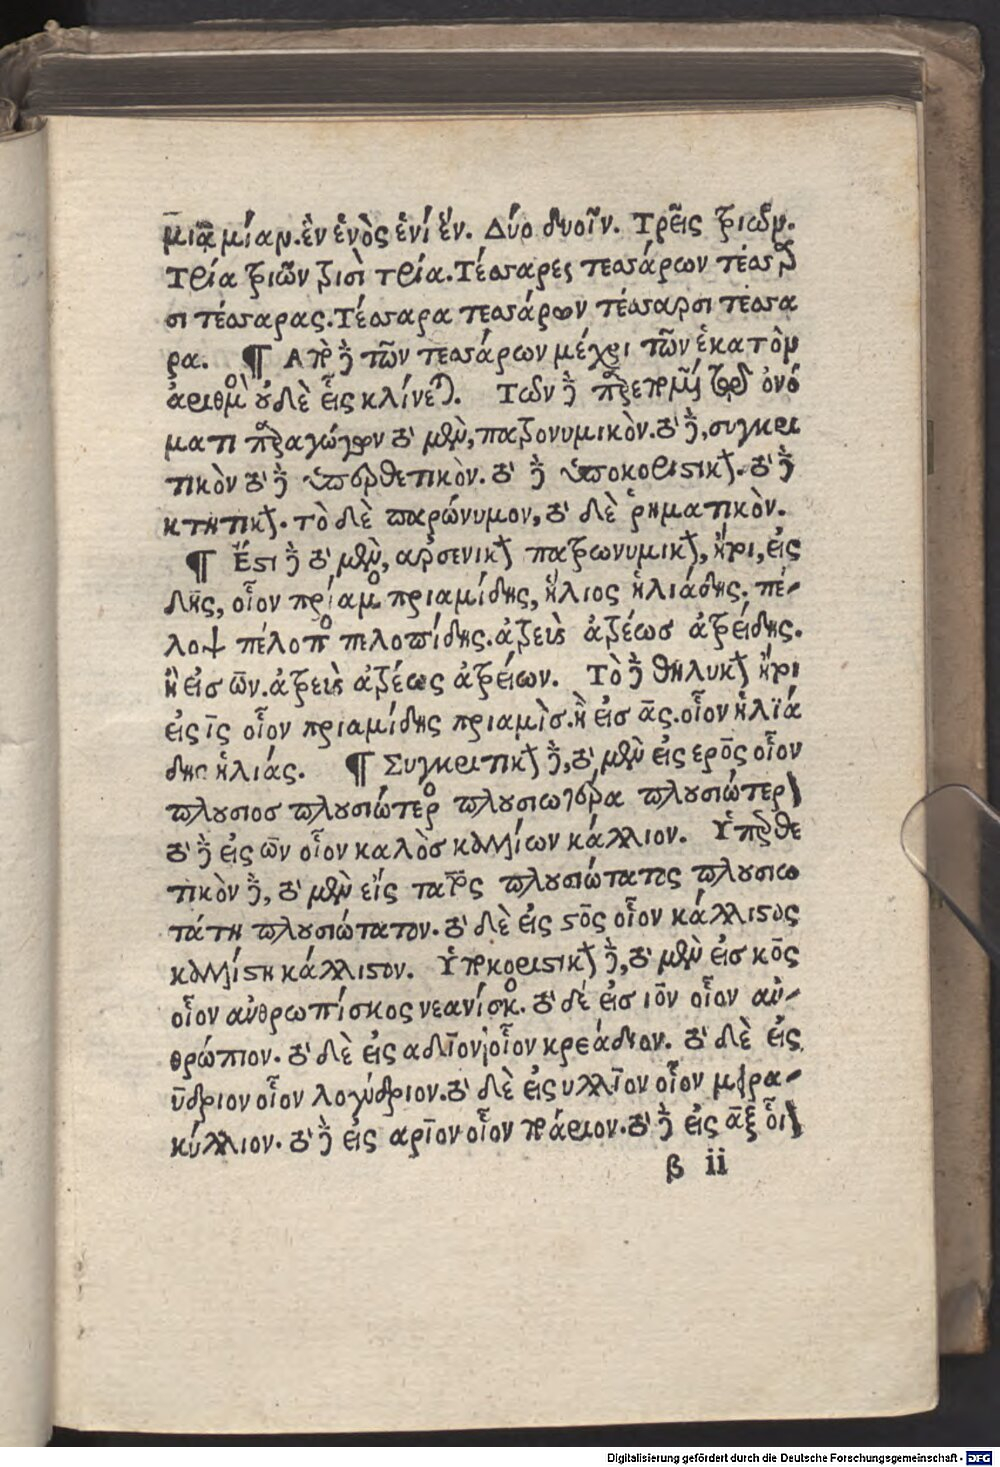 μιᾷ μίαν. ἓν ἑνὸς ἑνί ἕν. Δύο δυοῖν. Τρεῖς τριῶν.
Τρία τριῶν τρισὶ τρία. Τέσσαρες τεσσάρων τέσσαρ
σι τέσσαρας. Τέσσαρα τεσσάρων τέσσαρσι τέσσα
ρα. ¶ Ἀπὸ δὲ τῶν τεσσάρων μέχρι τῶν ἑκατὸν
ἀριθμὸς οὐδὲ εἷς κλίνεται. Τῶν δὲ ὀνό
ματι παραγώγων τὸ μὲν, πατρονυμικὸν. τὸ δὲ, συγκρι
τικὸν τὸ δὲ ὑπερθετικὸν. τὸ δὲ ὑποκοριστικὸν. τὸ δὲ
κτητικὸν. τὸ δὲ παρώνυμον, τὸ δὲ ῥηματικὸν.
¶ Ἔστι δὲ τὸ μὲν, ἀρσενικὸν πατρωνυμικὸν, ἤτοι, εἰς
δης, οἷον πρίαμος πριαμίδης, ἥλιος ἡλιάδης. πέ-
λοψ πέλοπος πελοπίδης. ἀτρεὺς ἀτρέως ἀτρείδης.
ἢ εἰσ ων. ἀτρεὺς ἀτρέως ἀτρείων. Τὸ δὲ θηλυκὸν ἤτοι
εἰς ις οἷον πριαμίδης πριαμὶσ. ἢ εἰσ ας. οἷον ἡλϊά
δης ἡλιάς. ¶ Συγκριτικὸν δὲ, τὸ μὲν εἰς ερος οἷον
πλούσιοσ πλουσιώτερος πλουσιωτέρα πλουσιώτερον
τὸ δὲ εἰς ων οἷον καλὸσ καλλίων κάλλιον. Ὑπερθε
τικὸν δὲ, τὸ μὲν εἰς τατος πλουσιώτατος πλουσιω
τάτη πλουσιώτατον. τὸ δὲ εἰς στος οἷον κάλλιστος
καλλίστη κάλλιστον. Ὑποκοριστικὸν δὲ, τὸ μὲν εἰσ κος
οἷον ἀνθρωπίσκος νεανίσκος. τὸ δέ εἰσ ιον οἷον ἀν-
θρώπιον. τὸ δὲ εἰς αδιον οἷον κρεάδιον. τὸ δὲ εἰς
υδριον οἷον λογύδριον. τὸ δὲ εἰς υλλιον οἷον μειρα-
κύλλιον. τὸ δὲ εἰς αριον οἷον παάριον. τὸ δὲ εἰς αξ οἷον
β ii
Digitalisierung gefördert durch die Deutsche Forschungsgemeinschaft - DFG